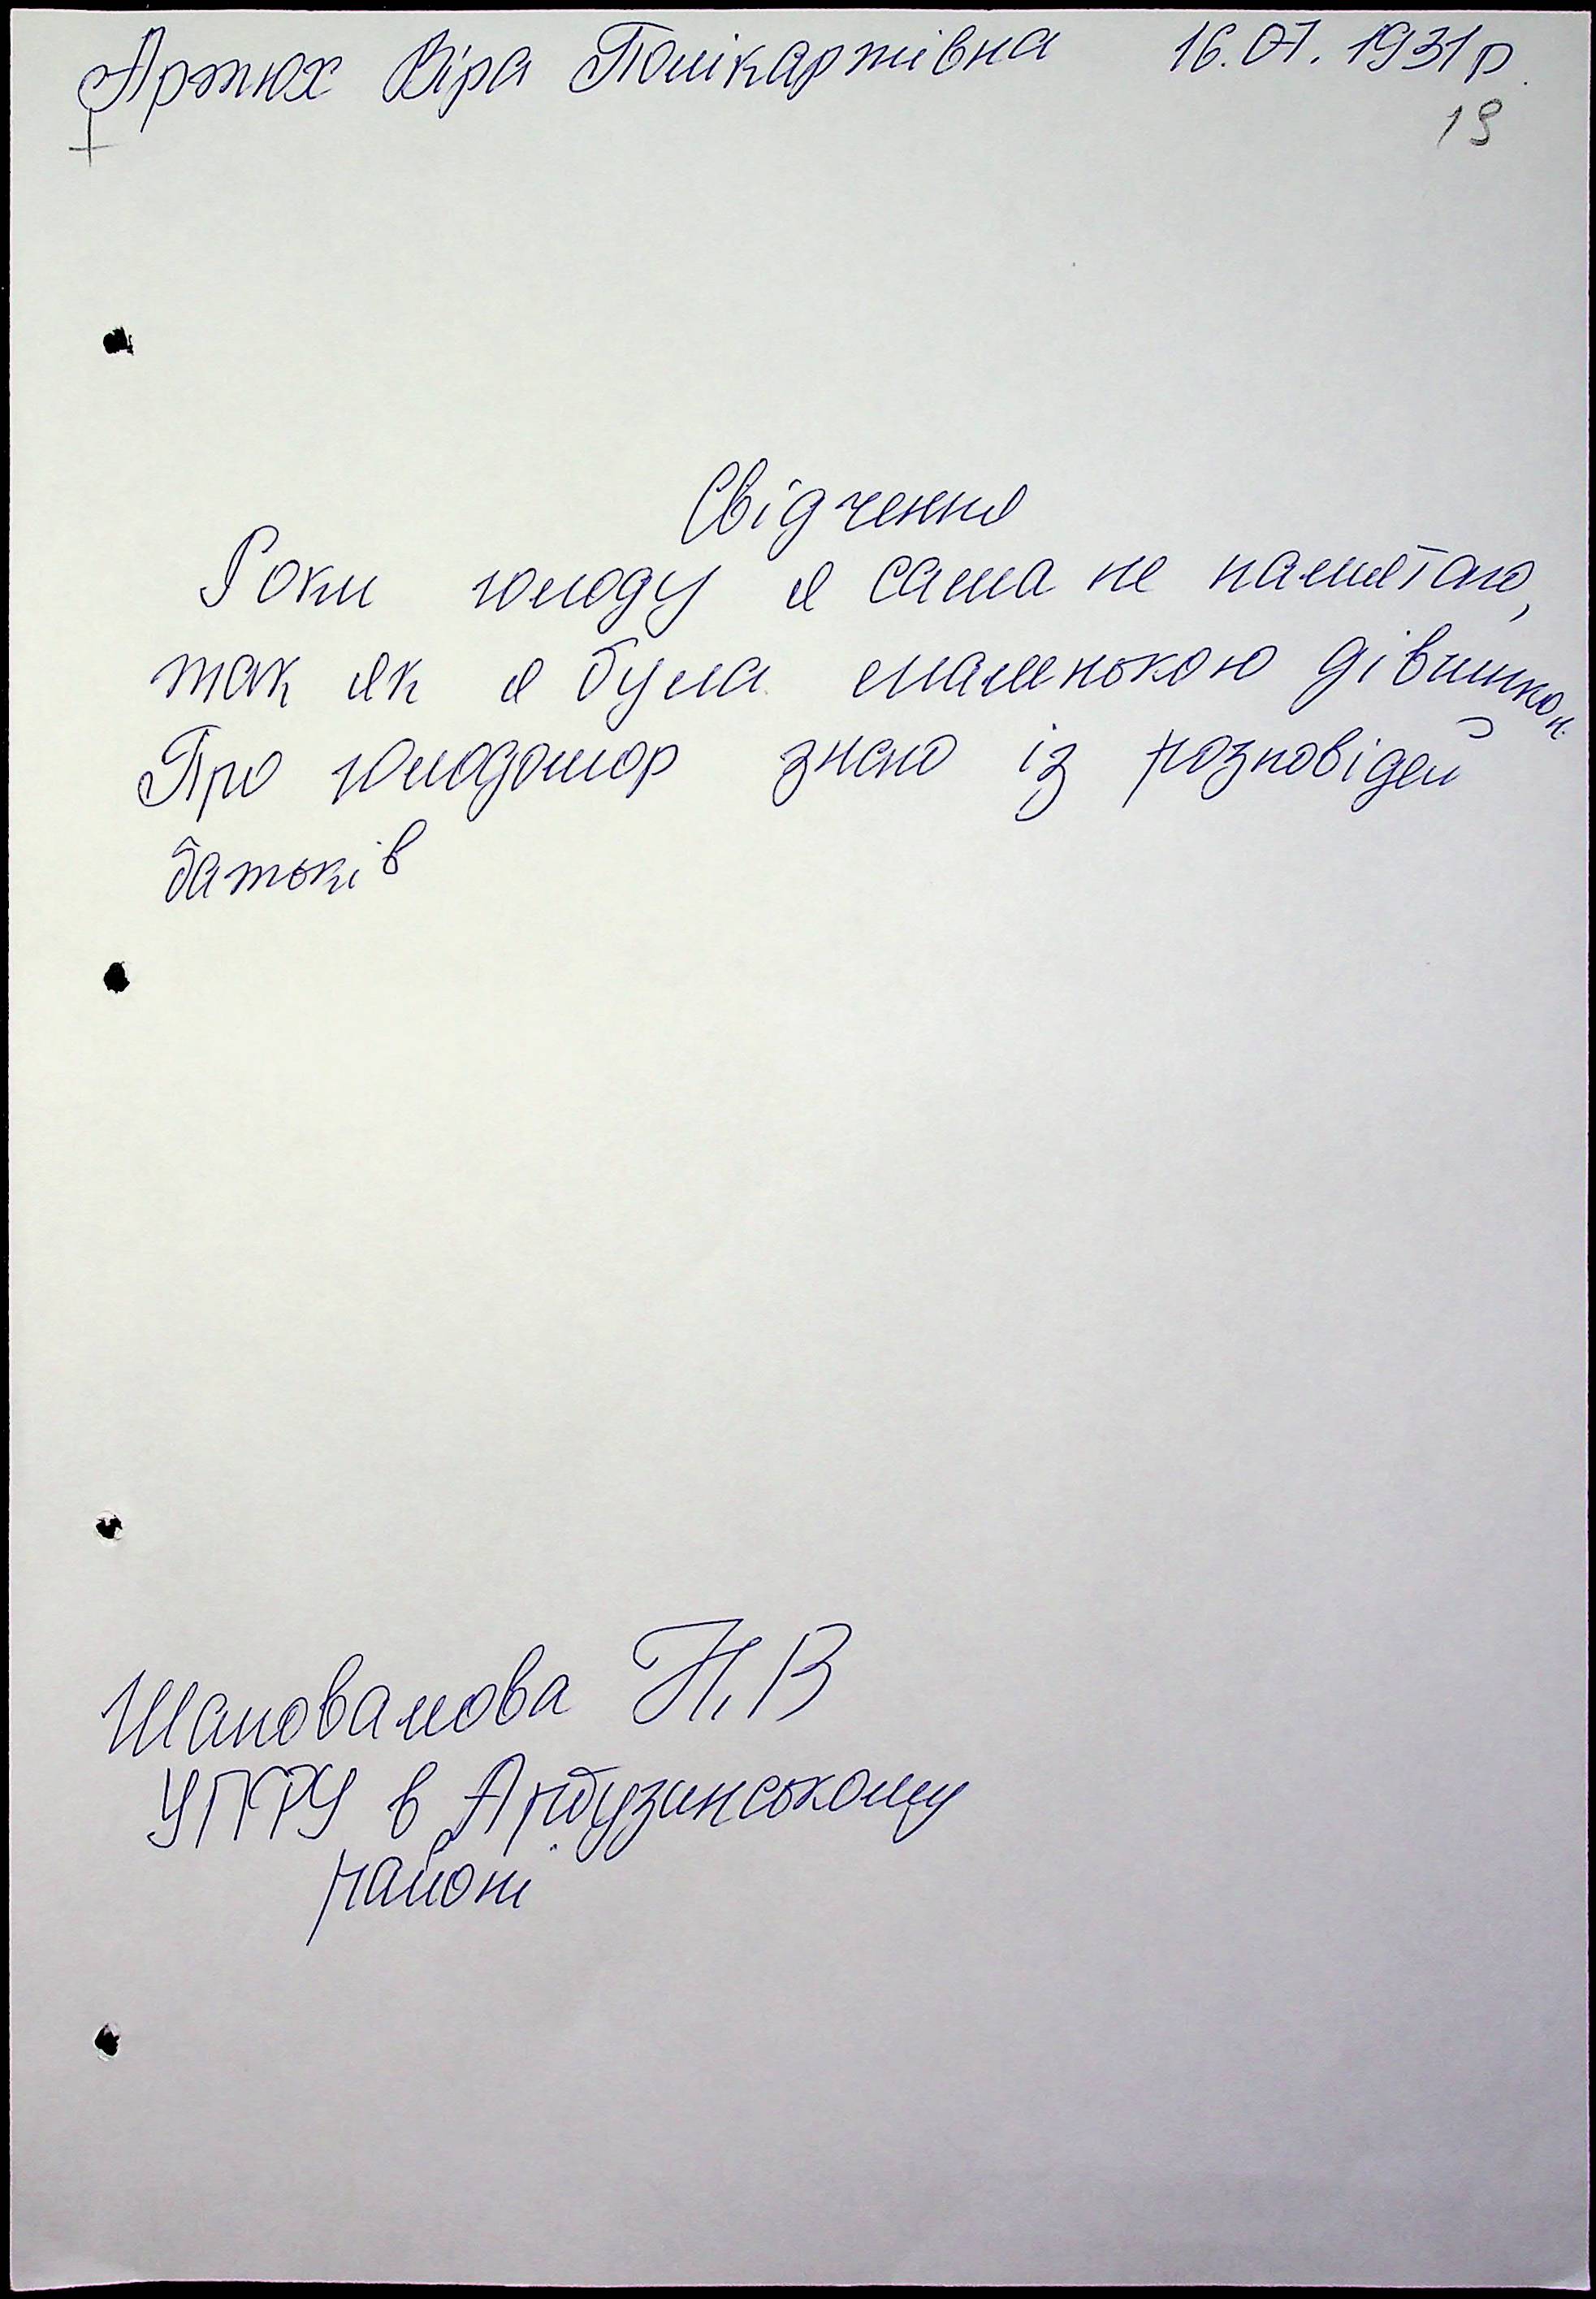 Артюх Віра Полікарпівна 16.07.1931р.
19
Свідчення
Роки голоду я сама не памятаю,
так як я була маленькою дівчинкою.
Про голодомор знаю із розповідей
батьків
Шаповалова Н.В
УПФУ в Арбузинському
районі